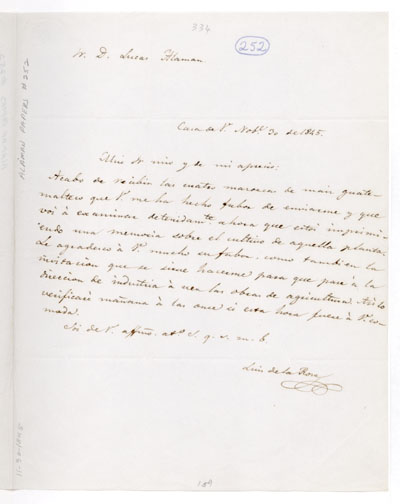 334
252
Sr. D. Lucas Alaman
Casa de V. Nobe. 30 de 1845.
Mui Sr mio y de mi aprecio:
Acabo de recibir las cuatro marorcas de maiz guate-
malteco que V. me ha hecho favor de enviarme y que
voi á examinar detenidamte ahora que estoi imprimi-
endo una memoria sobre el cultivo de aquella planta.
Le agradezco á V. mucho su favor, como tambien la
invitacion que se sirve hacerme para que pase á la
direccion de industria á ver las obras de agricultura. Así lo
verificaré mañana á las once si esta hora fuere á V. co-
moda.
Soi de V. affmo. atto. S. q. s. m. b.
Luis de la Rosa
189
ALAMAN PAPERS #252
11-30-1845